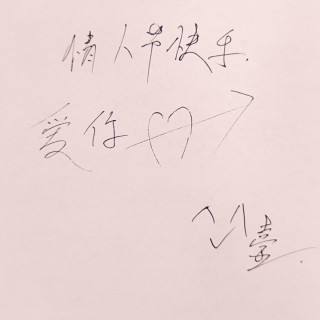 情人节快乐.
爱你